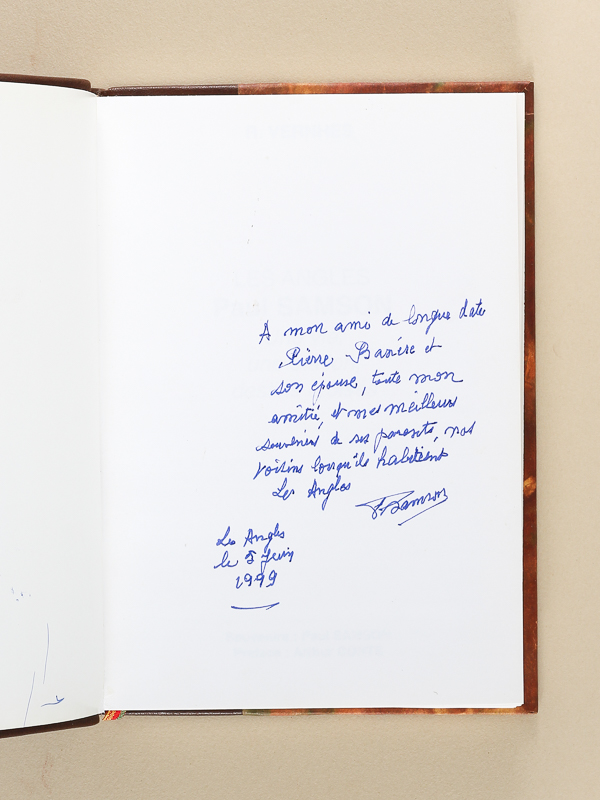 A mon ami de longue date
Pierre Barière et
son épouse, toute mon
amitié, et mes meilleurs
souvenirs de ses parents, nos
voisins lorsqu'ils habitaient
Les Angles
Les Angles
le 5 Juin
1999